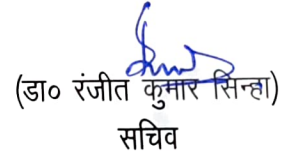 (डा० रंजीत कुमार सिन्हा)
सचिव